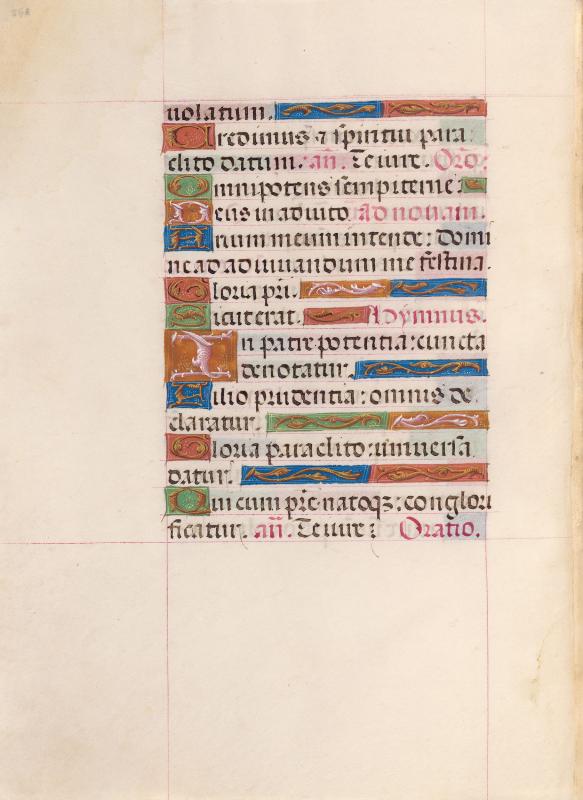 uolatum.
Credimus ⁊ spiritui para
clito datum. añ. Te iure. Orõ.
Omnipotens sempiterne.
Deus in adiuto ad nonam.
rium meum intende: domi
ne ad adiuuandum me festina.
Gloria pri.
Sicut erat. Hymnus.
In patre potentia: cuncta
denotatur.
Filio prudentia: omnis de
claratur.
Gloria paraclito: uniuersa
datur.
Qui cum prẽ natoqꝫ: conglori
ficatur. añ. Te iure: Oratio.